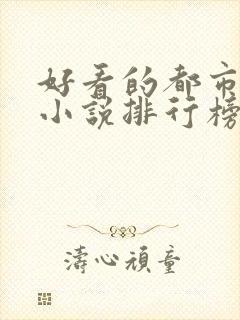 好看的都市
小说排行榜
濤心頑童